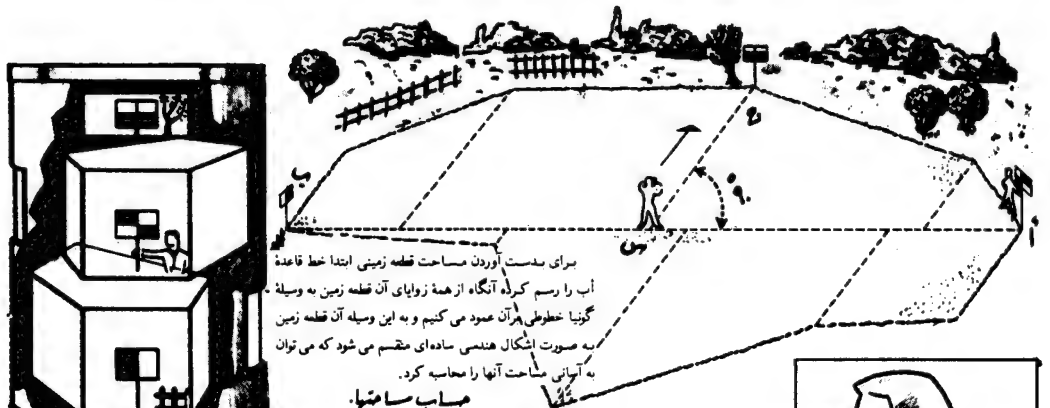 ج
۹۰°
ب
أ
س
برای بدست آوردن مساحت قطعه زمینی ابتدا خط قاعدة
أب را رسم کرده آنگاه از همهٔ زوایای آن قطعه زمین به وسیلهٔ
گونیا خطوطی برآن عمود می کنیم و به این وسیله آن قطعه زمین
به صورت اشکال هندسی ساده‌ای منقسم می شود که می توان
به آسانی مساحت آنها را محاسبه کرد.
حساب مساحتها.